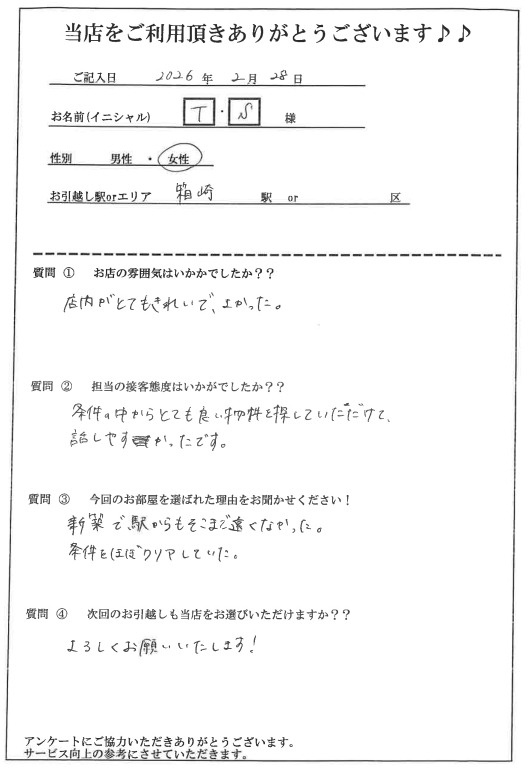 当店をご利用頂きありがとうございます♪♪
ご記入日 2026 年 2 月 28 日
お名前(イニシャル) T ・ S 様
性別 男性 ・ 女性
お引越し駅orエリア 箱崎 駅 or 区
質問 ① お店の雰囲気はいかかでしたか？？
店内がとてもきれいで、よかった。
質問 ② 担当の接客態度はいかがでしたか？？
条件の中からとても良い物件を探していただけて、
話しやすかったです。
質問 ③ 今回のお部屋を選ばれた理由をお聞かせください！
新築で駅からもそこまで遠くなかった。
条件をほぼクリアしていた。
質問 ④ 次回のお引越しも当店をお選びいただけますか？？
よろしくお願いいたします！
アンケートにご協力いただきありがとうございます。
サービス向上の参考にさせていただきます。